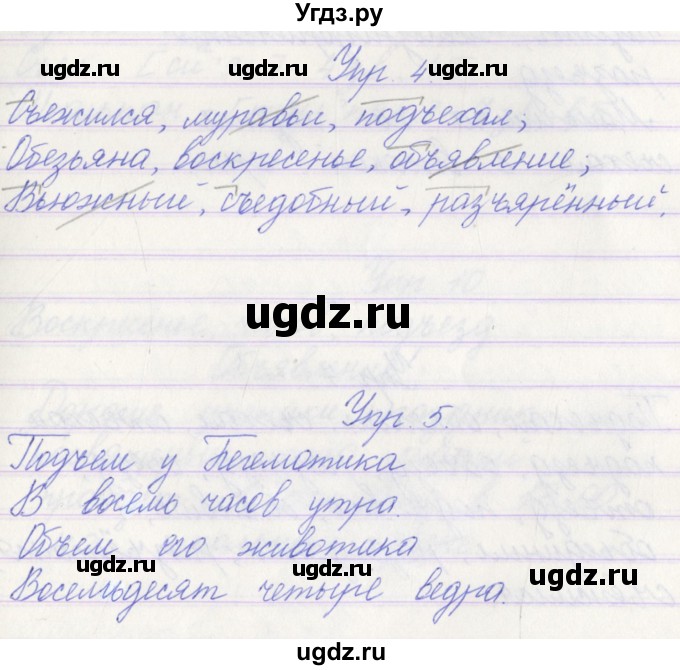 Угдз.ру
ugdz.ru ugdz.ru ugdz.ru
Упр. 4.
Съежился, муравьи, подъехал;
Обезьяна, воскресенье, объявление;
Вьюжный, съедобный, разъярённый.
ugdz.ru ugdz.ru
Упр. 5.
Подъем у Бегемотика
В восемь часов утра.
Объем его животика
ugdz.ru ugdz.ru ugdz.ru
Восемьдесят четыре ведра.
ugdz.ru ugdz.ru